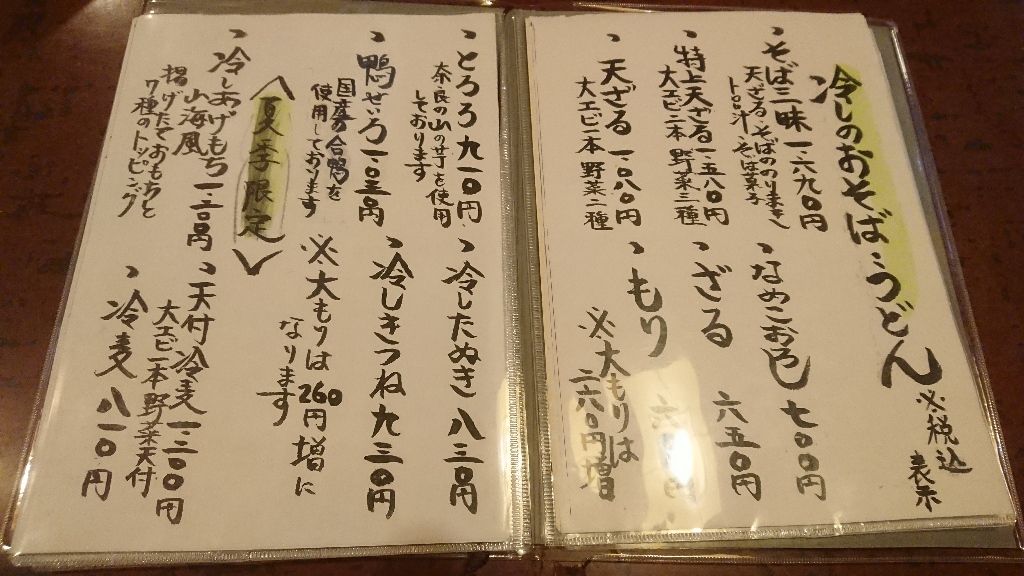 冷しのおそば・うどん
※税込
表示
、そば三昧 一、六九〇円
天ざる、そばのりまき
トロロ汁、そば菓子
、特上天ざる 一、五八〇円
大エビ二本 野菜三種
、天ざる 一、〇八〇円
大エビ一本 野菜二種
、なめこおろし 七〇〇円
、ざる 六五〇円
、もり 六
※大もりは
二六〇円増
、とろろ 九一〇円
奈良の山の芋を使用
しております
、鴨せいろ 一、〇三〇円
国産の合鴨を
使用しております
、冷したぬき 八三〇円
、冷しきつね 九三〇円
※大もりは260円増に
なります
夏季限定
、冷しあげもち 一、二〇〇円
山海風
揚げたておもちと
7種のトッピング
、天付冷麦 一、二〇〇円
大エビ一本野菜天付
、冷麦 八一〇円